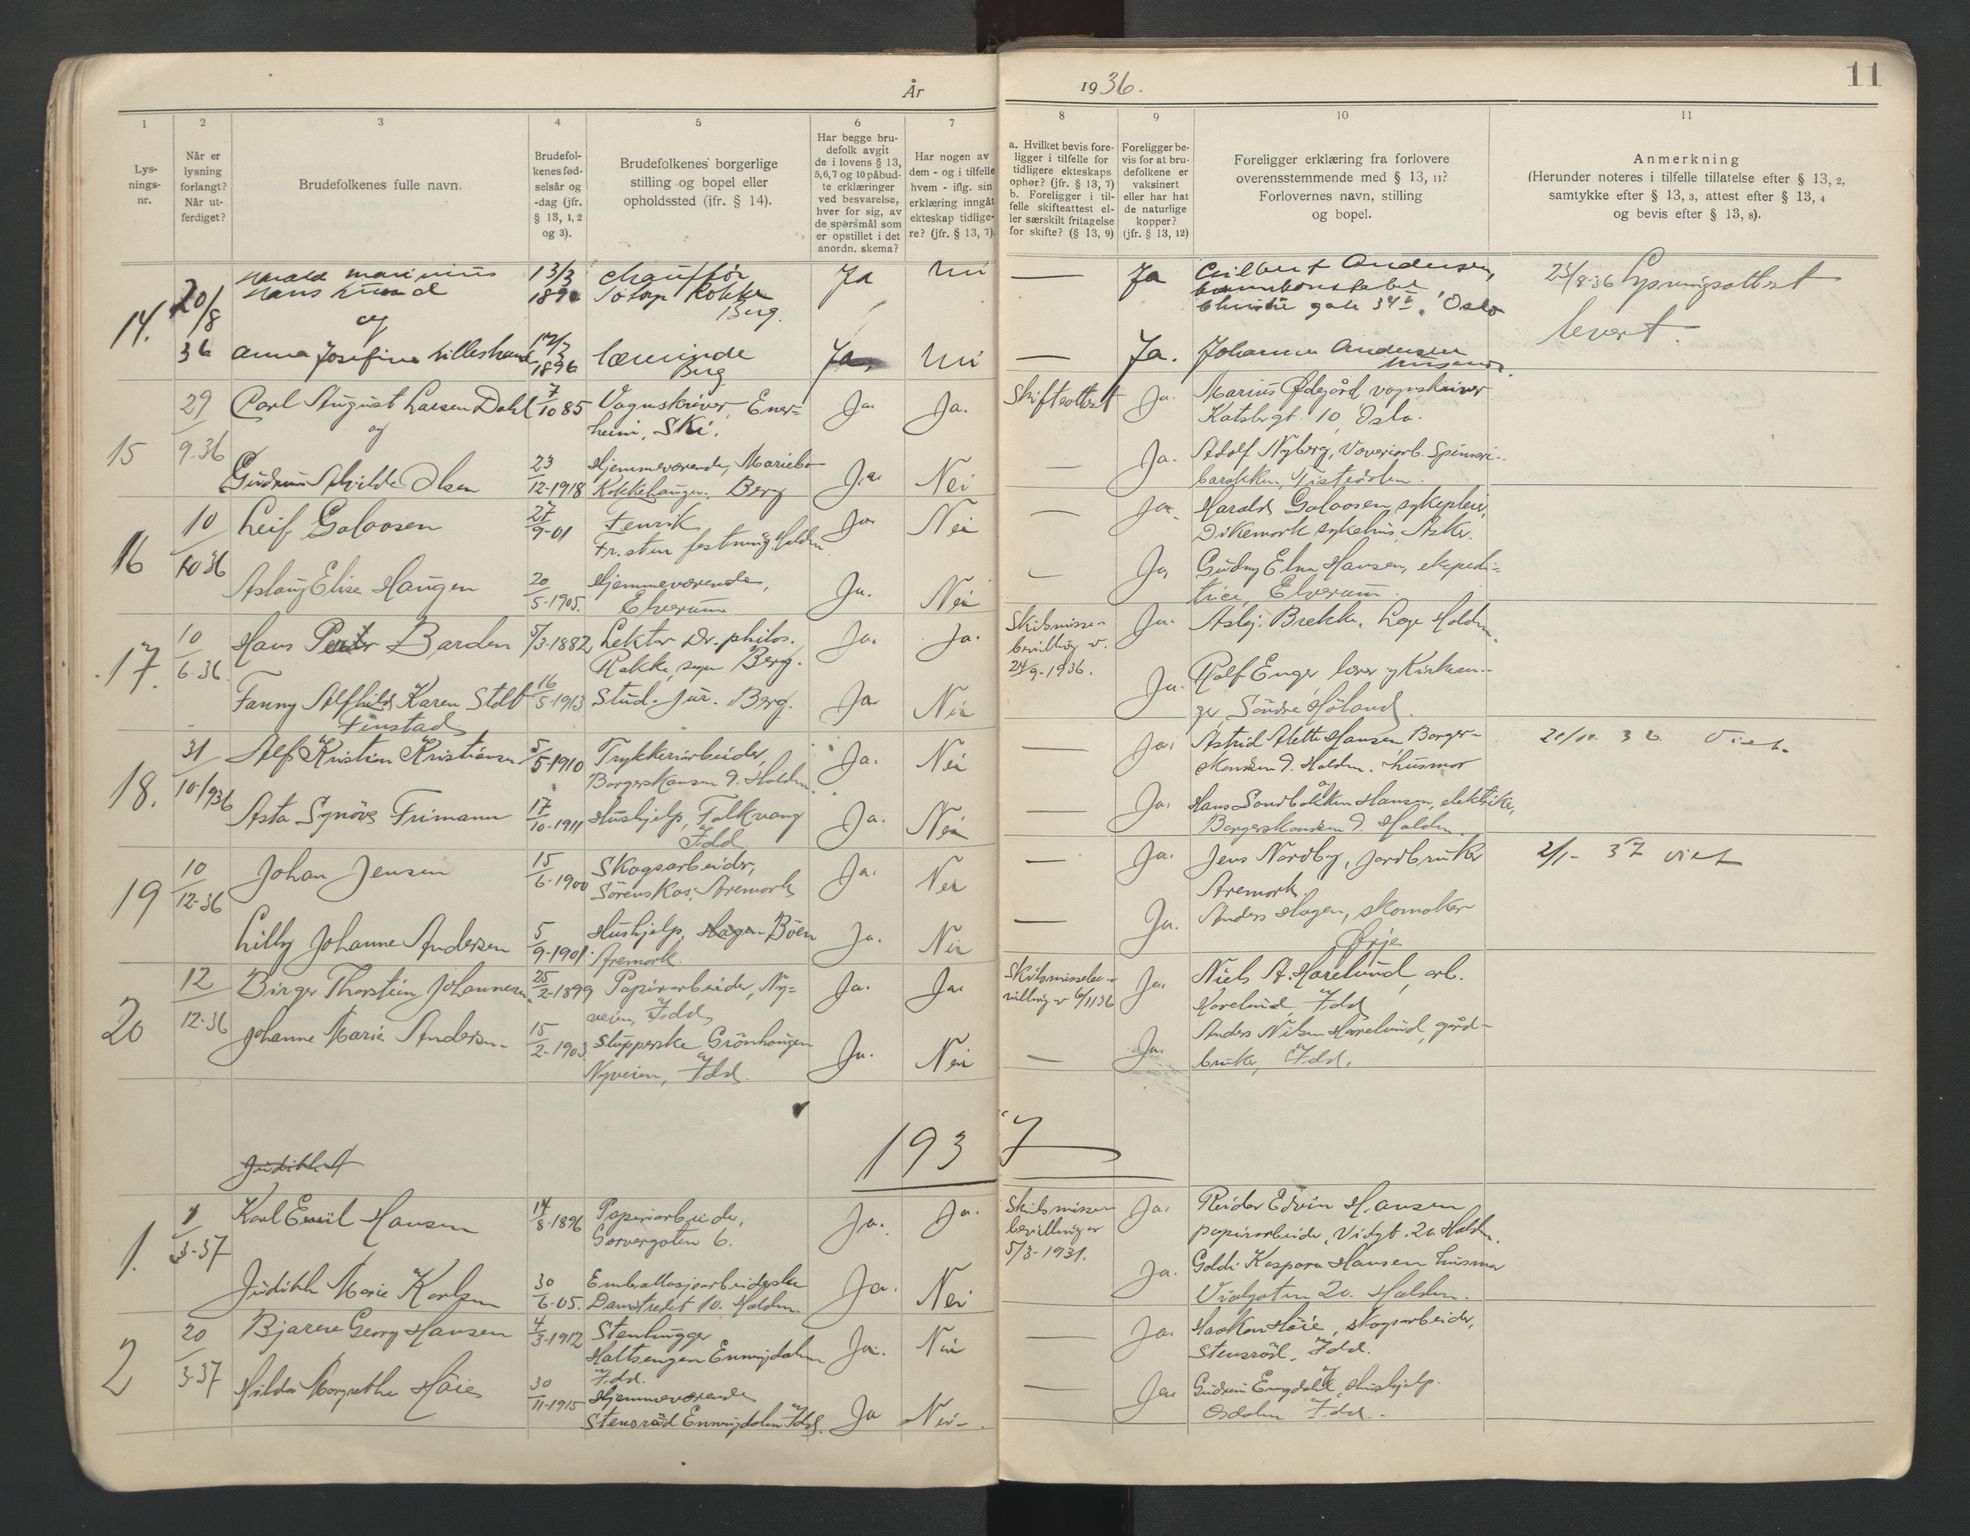 År 1936. 11
1 2 3 4 5 6 7 8 9 10 11
Lysningsnr.
Når er lysning forlangt? Når utferdiget?
Brudefolkenes fulle navn.
Brudefolkenes fødselsår og -dag (jfr. § 13, 1, 2 og 3).
Brudefolkenes borgerlige stilling og bopel eller opholdssted (jfr. § 14).
Har begge brudefolk avgit de i lovens § 13, 5,6,7 og 10 påbudte erklæringer ved besvarelse, hver for sig, av de spørsmål som er opstillet i det anordn. skema?
Har nogen av dem - og i tilfelle hvem - iflg. sin erklæring inngått ekteskap tidligere? (jfr. § 13, 7).
a. Hvilket bevis foreligger i tilfelle for tidligere ekteskaps ophør? (jfr. § 13, 7)
b. Foreligger i tilfelle skifteattest eller særskilt fritagelse for skifte? (§ 13, 9)
Foreligger bevis for at brudefolkene er vaksinert eller har hat de naturlige kopper? (jfr. § 13, 12)
Foreligger erklæring fra forlovere overensstemmende med § 13, 11? Forlovernes navn, stilling og bopel.
Anmerkning
(Herunder noteres i tilfelle tillatelse efter § 13, 2, samtykke efter § 13, 3, attest efter § 13, 4 og bevis efter § 13, 8).
14. 20/8 36
Hans Lund 13/3 chauffør Ja Nei — Ja Andersen,
Rokke Berg Christie gate 34 Oslo
og
Anna Josefine Lillestrand 1896 Berg Ja Nei — Ja. Johanna Andersen
25/8-36 Lysningsattest levert.
15 29/9.36
Carl August Larsen Dahl 7/10 85 Vognskriver, Enerheim, Ski. Ja. Ja. Skifteattest Ja. Marius Ødegård vognskriver
10, Oslo.
og
Gudrun Alvilde Olsen 23/12-1918 Hjemmeværende, Mariebo Rokkehaugen, Berg Ja. Nei — Ja. Adolf Nyberg, Veveriarb. Spinneribarakken, Tistedalen.
16 10/10 36
Leif Golaosen 27/9-01 Fenrik Fr.sten festning, Halden Ja. Nei — Ja. Harald Golaosen, sykepleier, Dikemark sykehus, Asker.
Aslaug Elise Haugen 20/5-1905. Hjemmeværende, Elverum. Ja. Nei — Ja Gudny Elna Hansen, ekspeditrice, Elverum.
17. 10/6.36
Hans Peter Barden 5/3-1882 Lektor Dr. philos. Rokke, sogn Berg. Ja. Ja. Skilsmissebevilling v. 24/9-1936. Ja. Asbj. Brekke, Lege Halden.
Fanny Alfhild Karen Stdt Finstad 16/5-1913 Stud. jur. Berg. Ja. Nei Ja. Rolf Enger lærer Søndre Høland.
18. 31/10-1936
Alf Kristian Kristiansen 5/5-1910 Trykkeriarbeider, Borgerskansen 9. Halden. Ja. Nei — Ja. Astrid Alette Hansen, Borgerskansen 9. Halden. husmor
Asta Synöve Frimann 17/10-1911 Hushjelp, Falkvang Idd Ja. Nei — Ja. Hans Sandbakken Hansen, elektriker, Borgerskansen 9. Halden.
36 Viet.
19 10/12-36
Johan Jensen 15/6-1900 Skogsarbeider, Sörenskas, Aremark Ja. Nei — Ja. Jens Nordby, Jordbruker Aremark.
Lilly Johanne Andersen 5/9-1901. Hushjelp, Böen Aremark. Ja. Nei — Ja. Anders Hagen, skomaker Ørje
2/1- 37 viet
20 12/12-36
Birger Thorstein Johannesen 25/2-1899 Papirarbeider, Nyveien, Idd Ja. Ja. Skilsmissebevilling v 6/11 36 Ja. Niels A. Harelund, arb. Harelund, Idd
Johanne Marie Andersen 15/2-1903. Stupperske Grönhaugen Nyveien, Idd. Ja. Nei — Ja. Anders Nilsen Harelund, gårdbruker, Idd.
1937
Judithe A
1. 1/3-37
Karl Emil Hansen 14/8-1896 Papirarbeider, Garvergaten 6. Ja. Ja. Skilsmissebevilling av 5/3-1931. Ja. Reidar Edvin Hansen papirarbeider, Vidgt. 20. Halden.
Judithe Marie Karlsen 30/6-05. Emballasjearbeiderske Damstredet 10. Halden. Ja. Nei Ja. Goldi Kaspara Hansen husmor Vidgaten 20. Halden.
2 20/3-37
Bjarne Georg Hansen 4/3-1912 Stenhugger Holtsengen Enningdalen Idd. Ja. Nei — Ja. Haakon Höie, skogsarbeider, Stensröd, Idd.
Hilda Margrethe Höie 30/11-1915 Hjemmeværende Stensröd Enningdalen Idd. Ja Nei. — Ja. Gudrun Engdahl, Hushjelp. Idd.